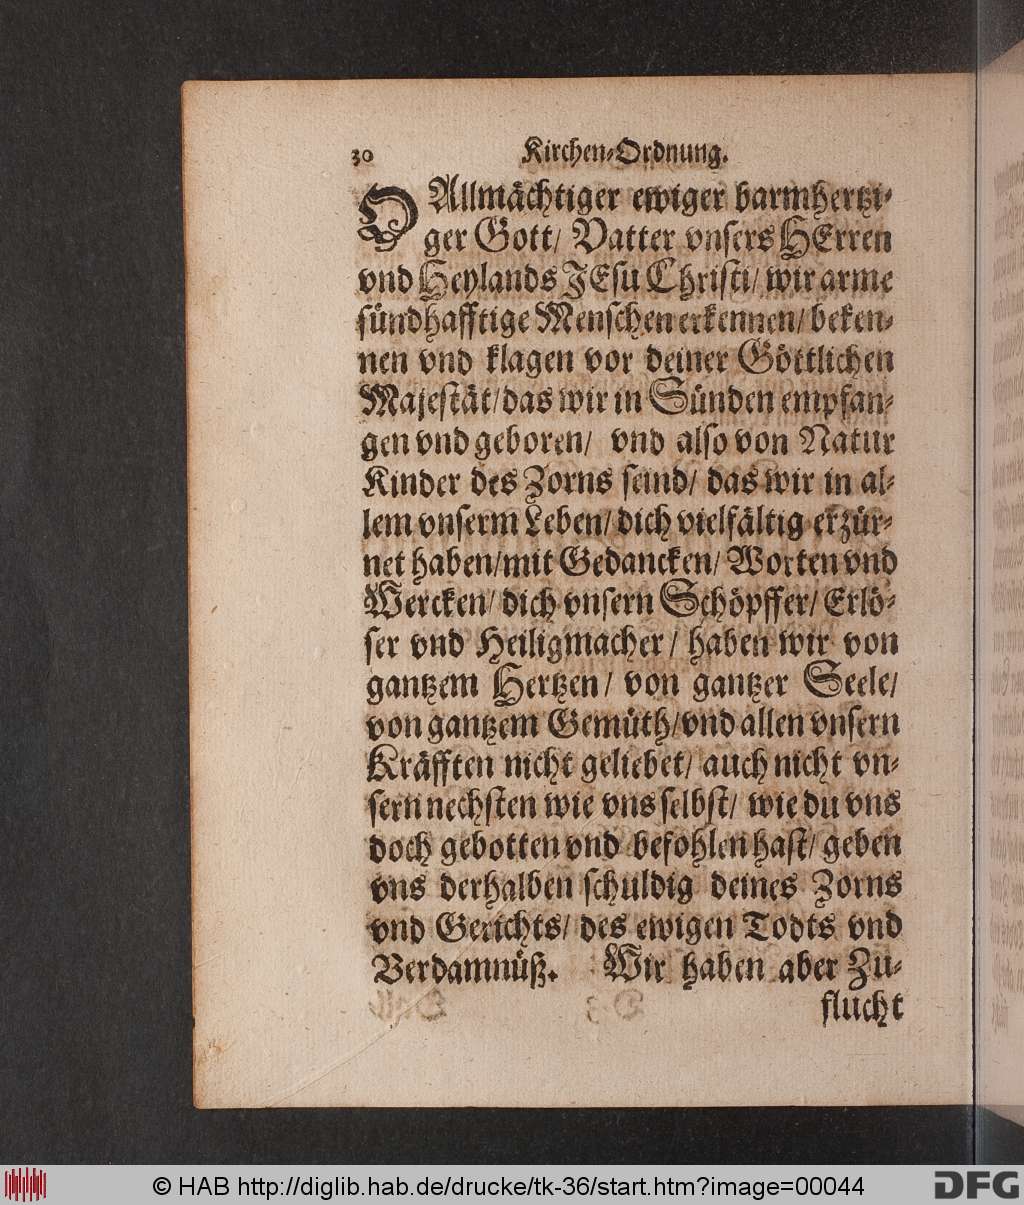 30 Kirchen-Ordnung.
O Allmächtiger ewiger barmhertzi-
ger Gott/ Vatter vnsers HErren
vnd Heylands JEsu Christi/ wir arme
sündhafftige Menschen erkennen/ beken-
nen vnd klagen vor deiner Göttlichen
Majestät/ das wir in Sünden empfan-
gen vnd geboren/ vnd also von Natur
Kinder des Zorns seind/ das wir in al-
lem vnserm Leben/ dich vielfältig erzür-
net haben/ mit Gedancken/ Worten vnd
Wercken/ dich vnsern Schöpffer/ Erlö-
ser vnd Heiligmacher/ haben wir von
gantzem Hertzen/ von gantzer Seele/
von gantzem Gemüth/ vnd allen vnsern
Kräfften nicht geliebet/ auch nicht vn-
sern nechsten wie vns selbst/ wie du vns
doch gebotten vnd befohlen hast/ geben
vns derhalben schuldig deines Zorns
vnd Gerichts/ des ewigen Todts vnd
Verdamnüß. Wir haben aber Zu-
flucht
© HAB http://diglib.hab.de/drucke/tk-36/start.htm?image=00044
DFG